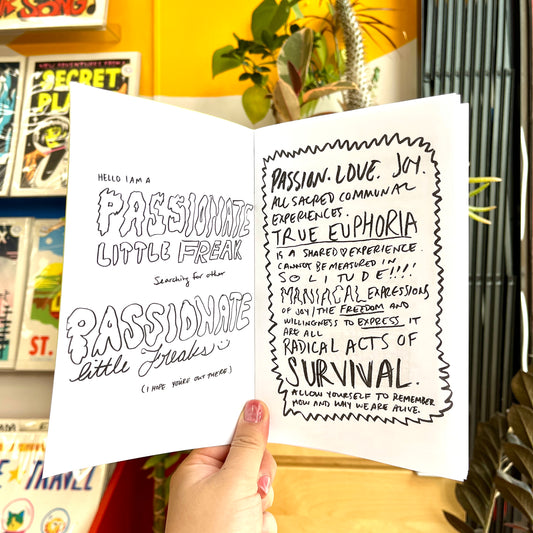 SONG!
SECRET
PLA
ST.
TRAVEL
HELLO I AM A
PASSIONATE
LITTLE FREAK
Searching for other
PASSIONATE
little freaks
(I HOPE YOU'RE OUT THERE)
PASSION. LOVE. JOY.
ALL SACRED COMMUNAL
EXPERIENCES.
TRUE EUPHORIA
IS A SHARED EXPERIENCE.
CANNOT BE MEASURED IN
SOLITUDE!!!!
MANIACAL EXPRESSIONS
OF JOY/THE FREEDOM AND
WILLINGNESS TO EXPRESS IT
ARE ALL
RADICAL ACTS OF
SURVIVAL.
ALLOW YOURSELF TO REMEMBER
HOW AND WHY WE ARE ALIVE.